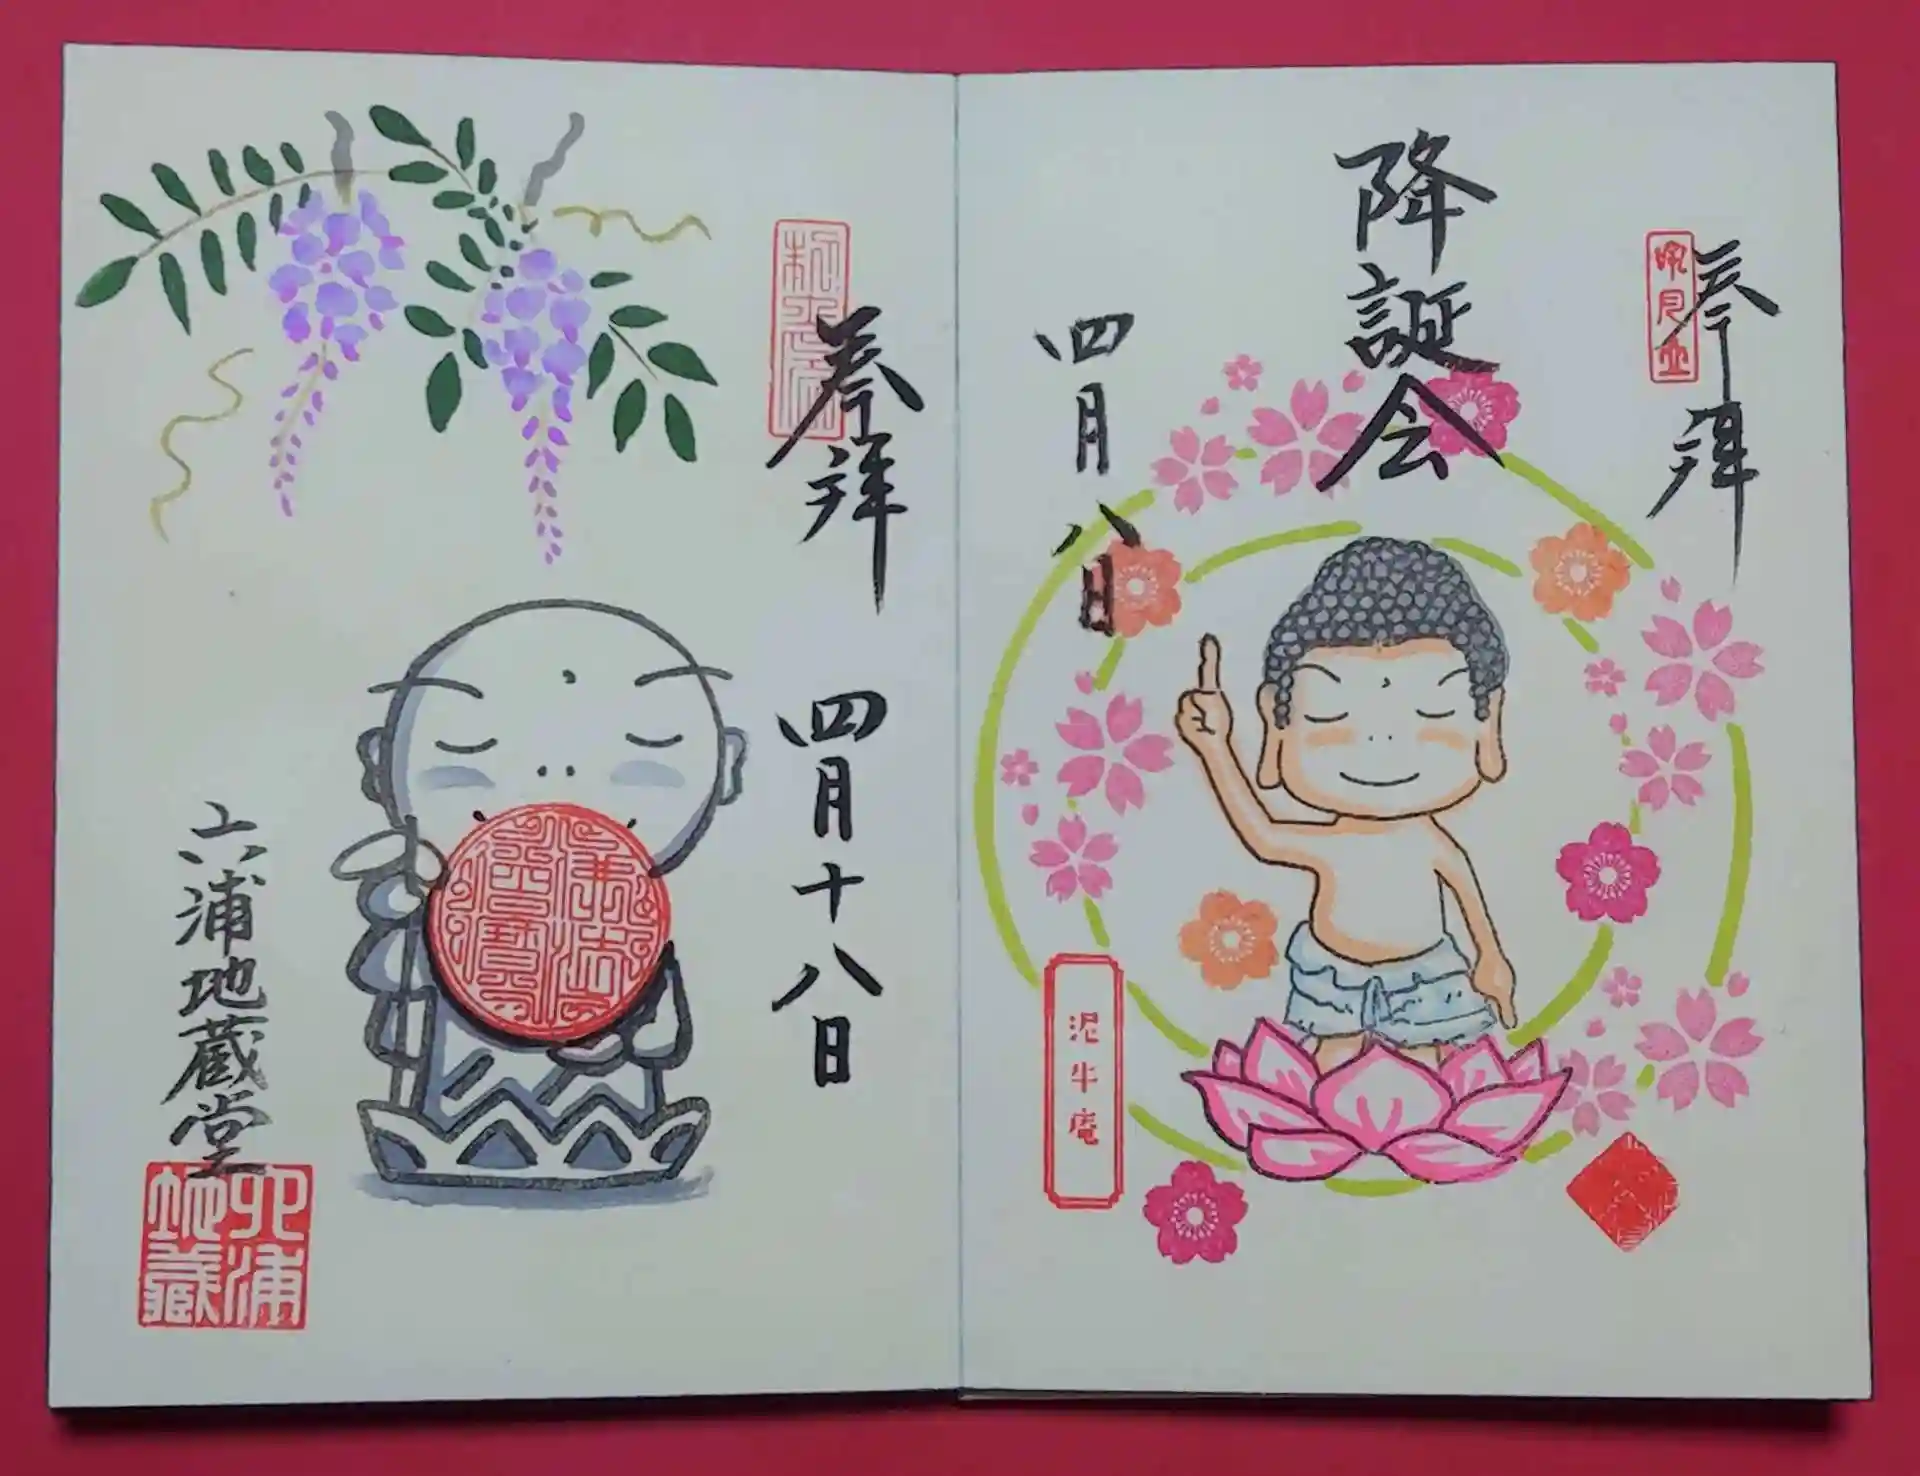 奉拝
降誕会
四月八日
泥牛庵
奉拝
四月十八日
六浦地蔵堂
六浦地蔵
佛法僧寳